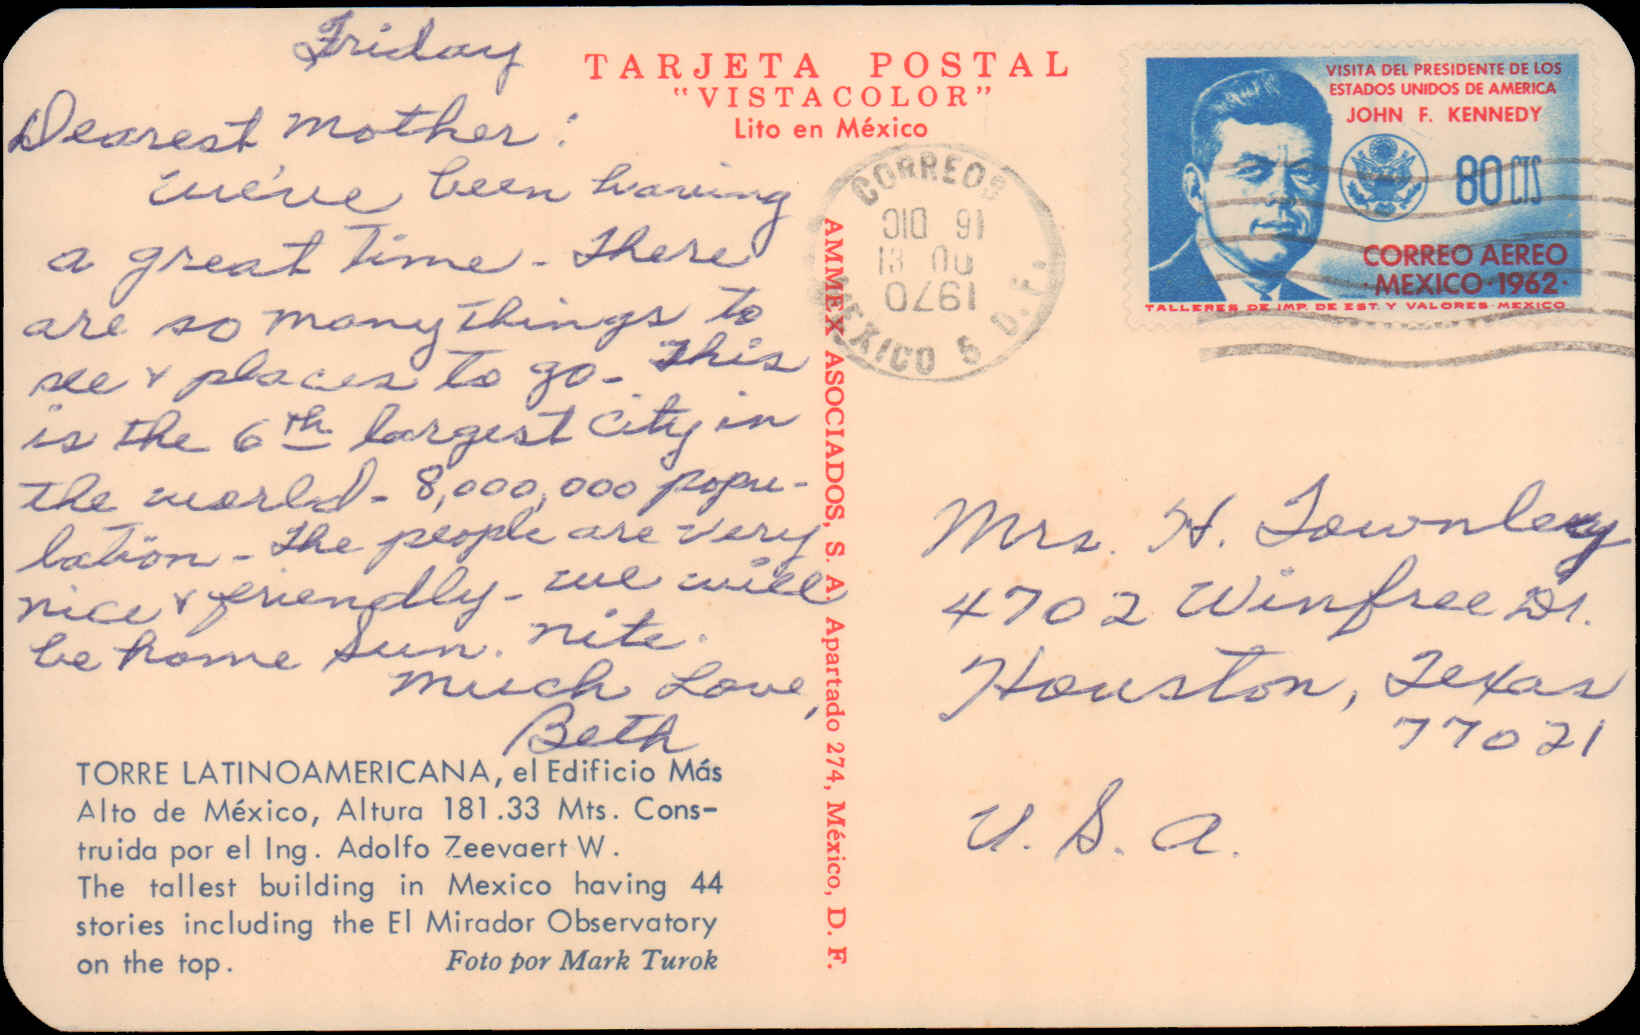 Friday
Dearest Mother:
We've been having
a great time - There
are so many things to
see & places to go - This
is the 6th largest city in
the world - 8,000,000 popu-
lation - The people are very
nice & friendly - we will
be home Sun. nite.
Much Love,
Beth
TORRE LATINOAMERICANA, el Edificio Más
Alto de México, Altura 181.33 Mts. Cons-
truida por el Ing. Adolfo Zeevaert W.
The tallest building in Mexico having 44
stories including the El Mirador Observatory
on the top. Foto por Mark Turok
TARJETA POSTAL
"VISTACOLOR"
Lito en México
AMMEX ASOCIADOS, S. A. Apartado 274, México, D. F.
CORREOS
16 DIC
1970
MEXICO 5 D.F.
VISITA DEL PRESIDENTE DE LOS
ESTADOS UNIDOS DE AMERICA
JOHN F. KENNEDY
80 CTS
CORREO AEREO
·MEXICO·1962·
TALLERES DE IMP. DE EST. Y VALORES-MEXICO
Mrs. H. Townley
4702 Winfree Dr.
Houston, Texas
77021
U.S.A.